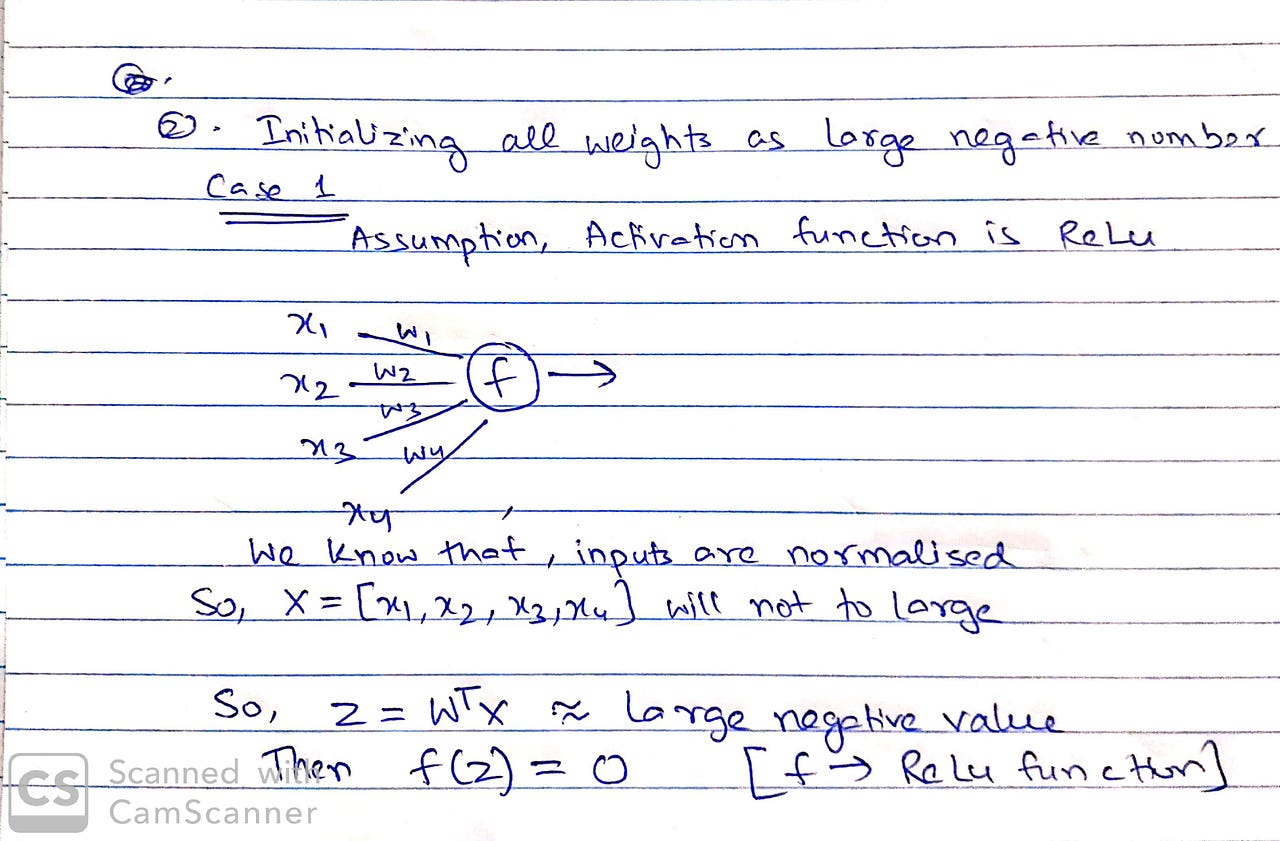 ②. Initializing all weights as large negative number
Case 1
Assumption, Activation function is ReLu
x1 w1
x2 w2 f →
w3
x3 w4
x4
We know that, inputs are normalised
So, X = [x1, x2, x3, x4] will not to large
So, z = WᵀX ≈ large negative value
Then f(z) = 0 [f → ReLu function]
CS Scanned with
CamScanner